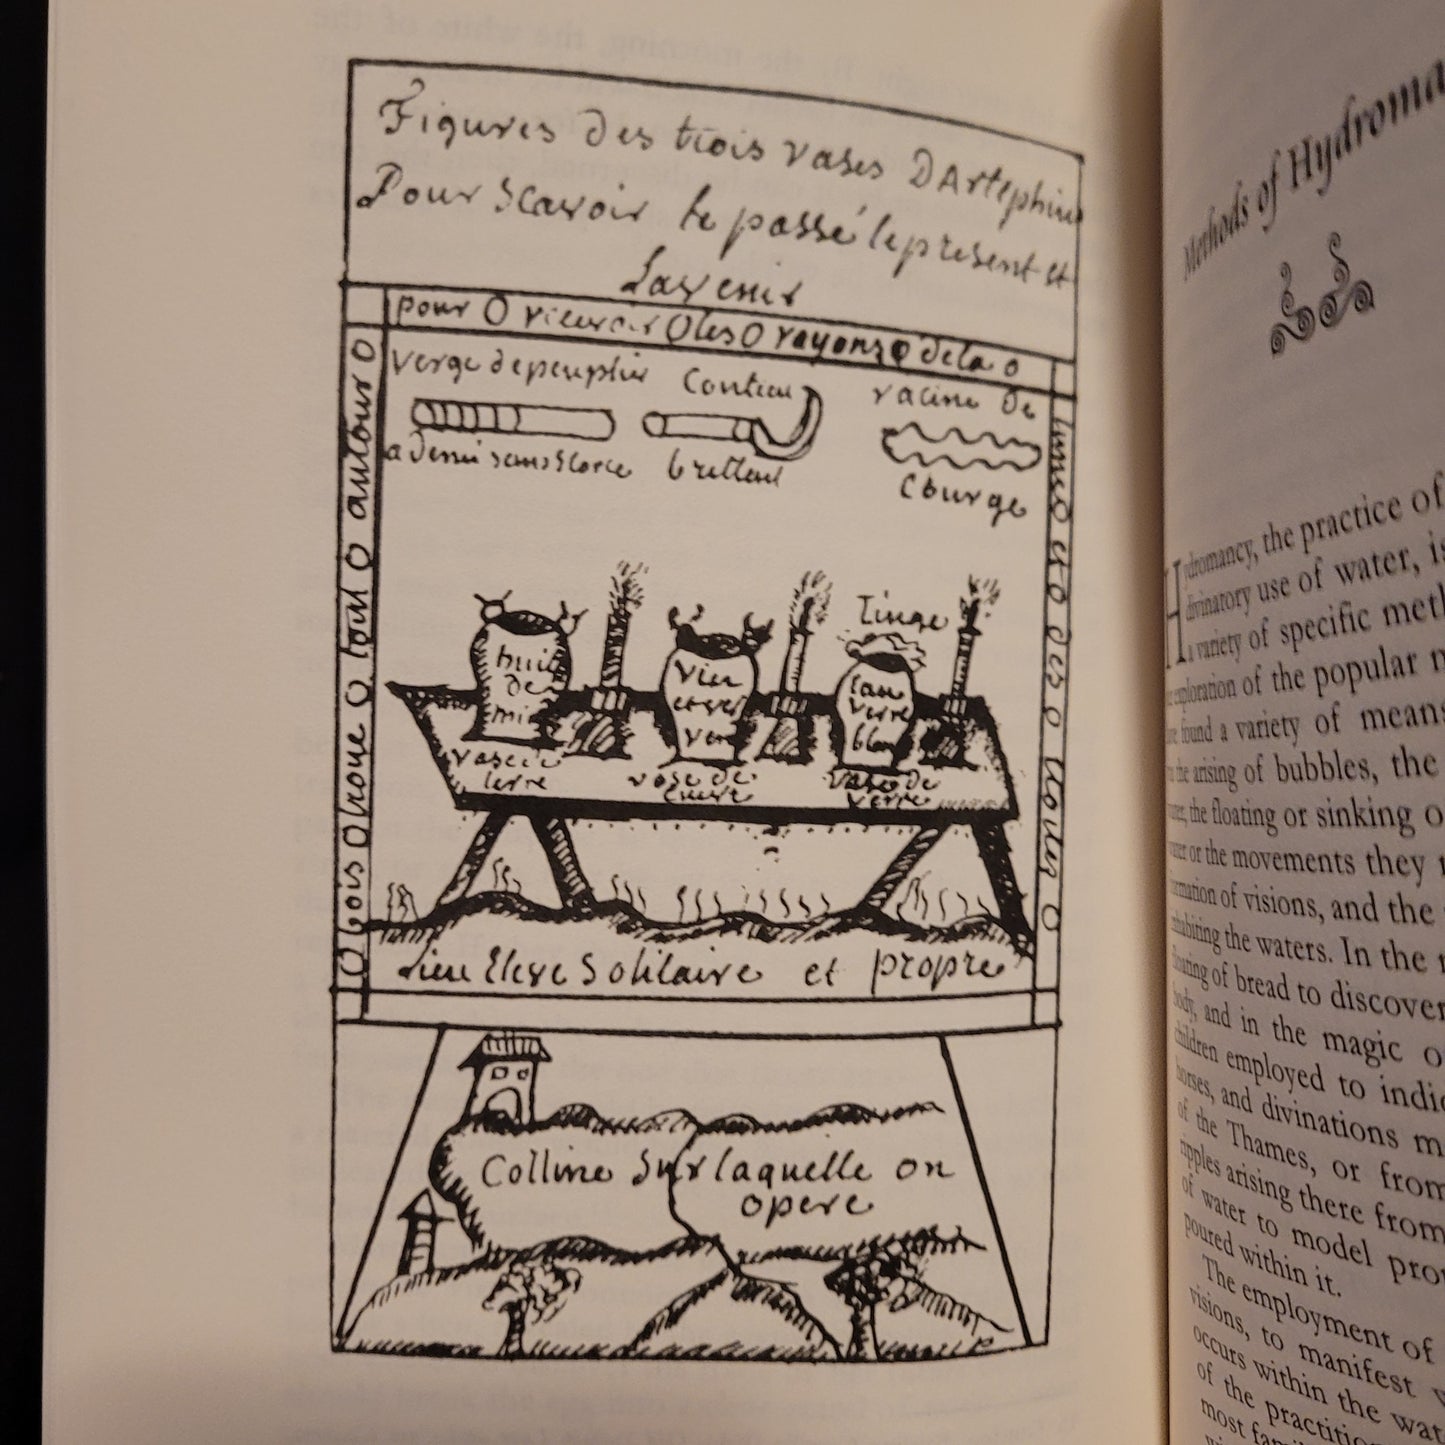 Figures Des trois vases DArtephius
Pour Scavoir le passé le present et
Lavenir
pour O recevoir O les O rayons O de la O
lune O et O des O
O bois O rouge O tout O autour O
verge de peuplier
a Demi sans Ecorce
Couteau
racine De
Courge
huile
de
mir
vase de
terre
Vin
et ver
vert
vase de
Linge
eau
verre
blan
vase De
verre
Lieu Eleve Solitaire et propre
Colline Sur laquelle on
opere
Methods of Hydroma
Hydromancy, the practice of
divinatory use of water, is
a variety of specific meth
exploration of the popular m
are found a variety of means
the arising of bubbles, the
the floating or sinking o
or the movements they
formation of visions, and the
inhabiting the waters. In the
floating of bread to discover
body, and in the magic o
children employed to indic
horses, and divinations m
of the Thames, or from
ripples arising there from
of water to model pro
poured within it.
The employment of
visions, to manifest
occurs within the wat
of the practitio
most fam